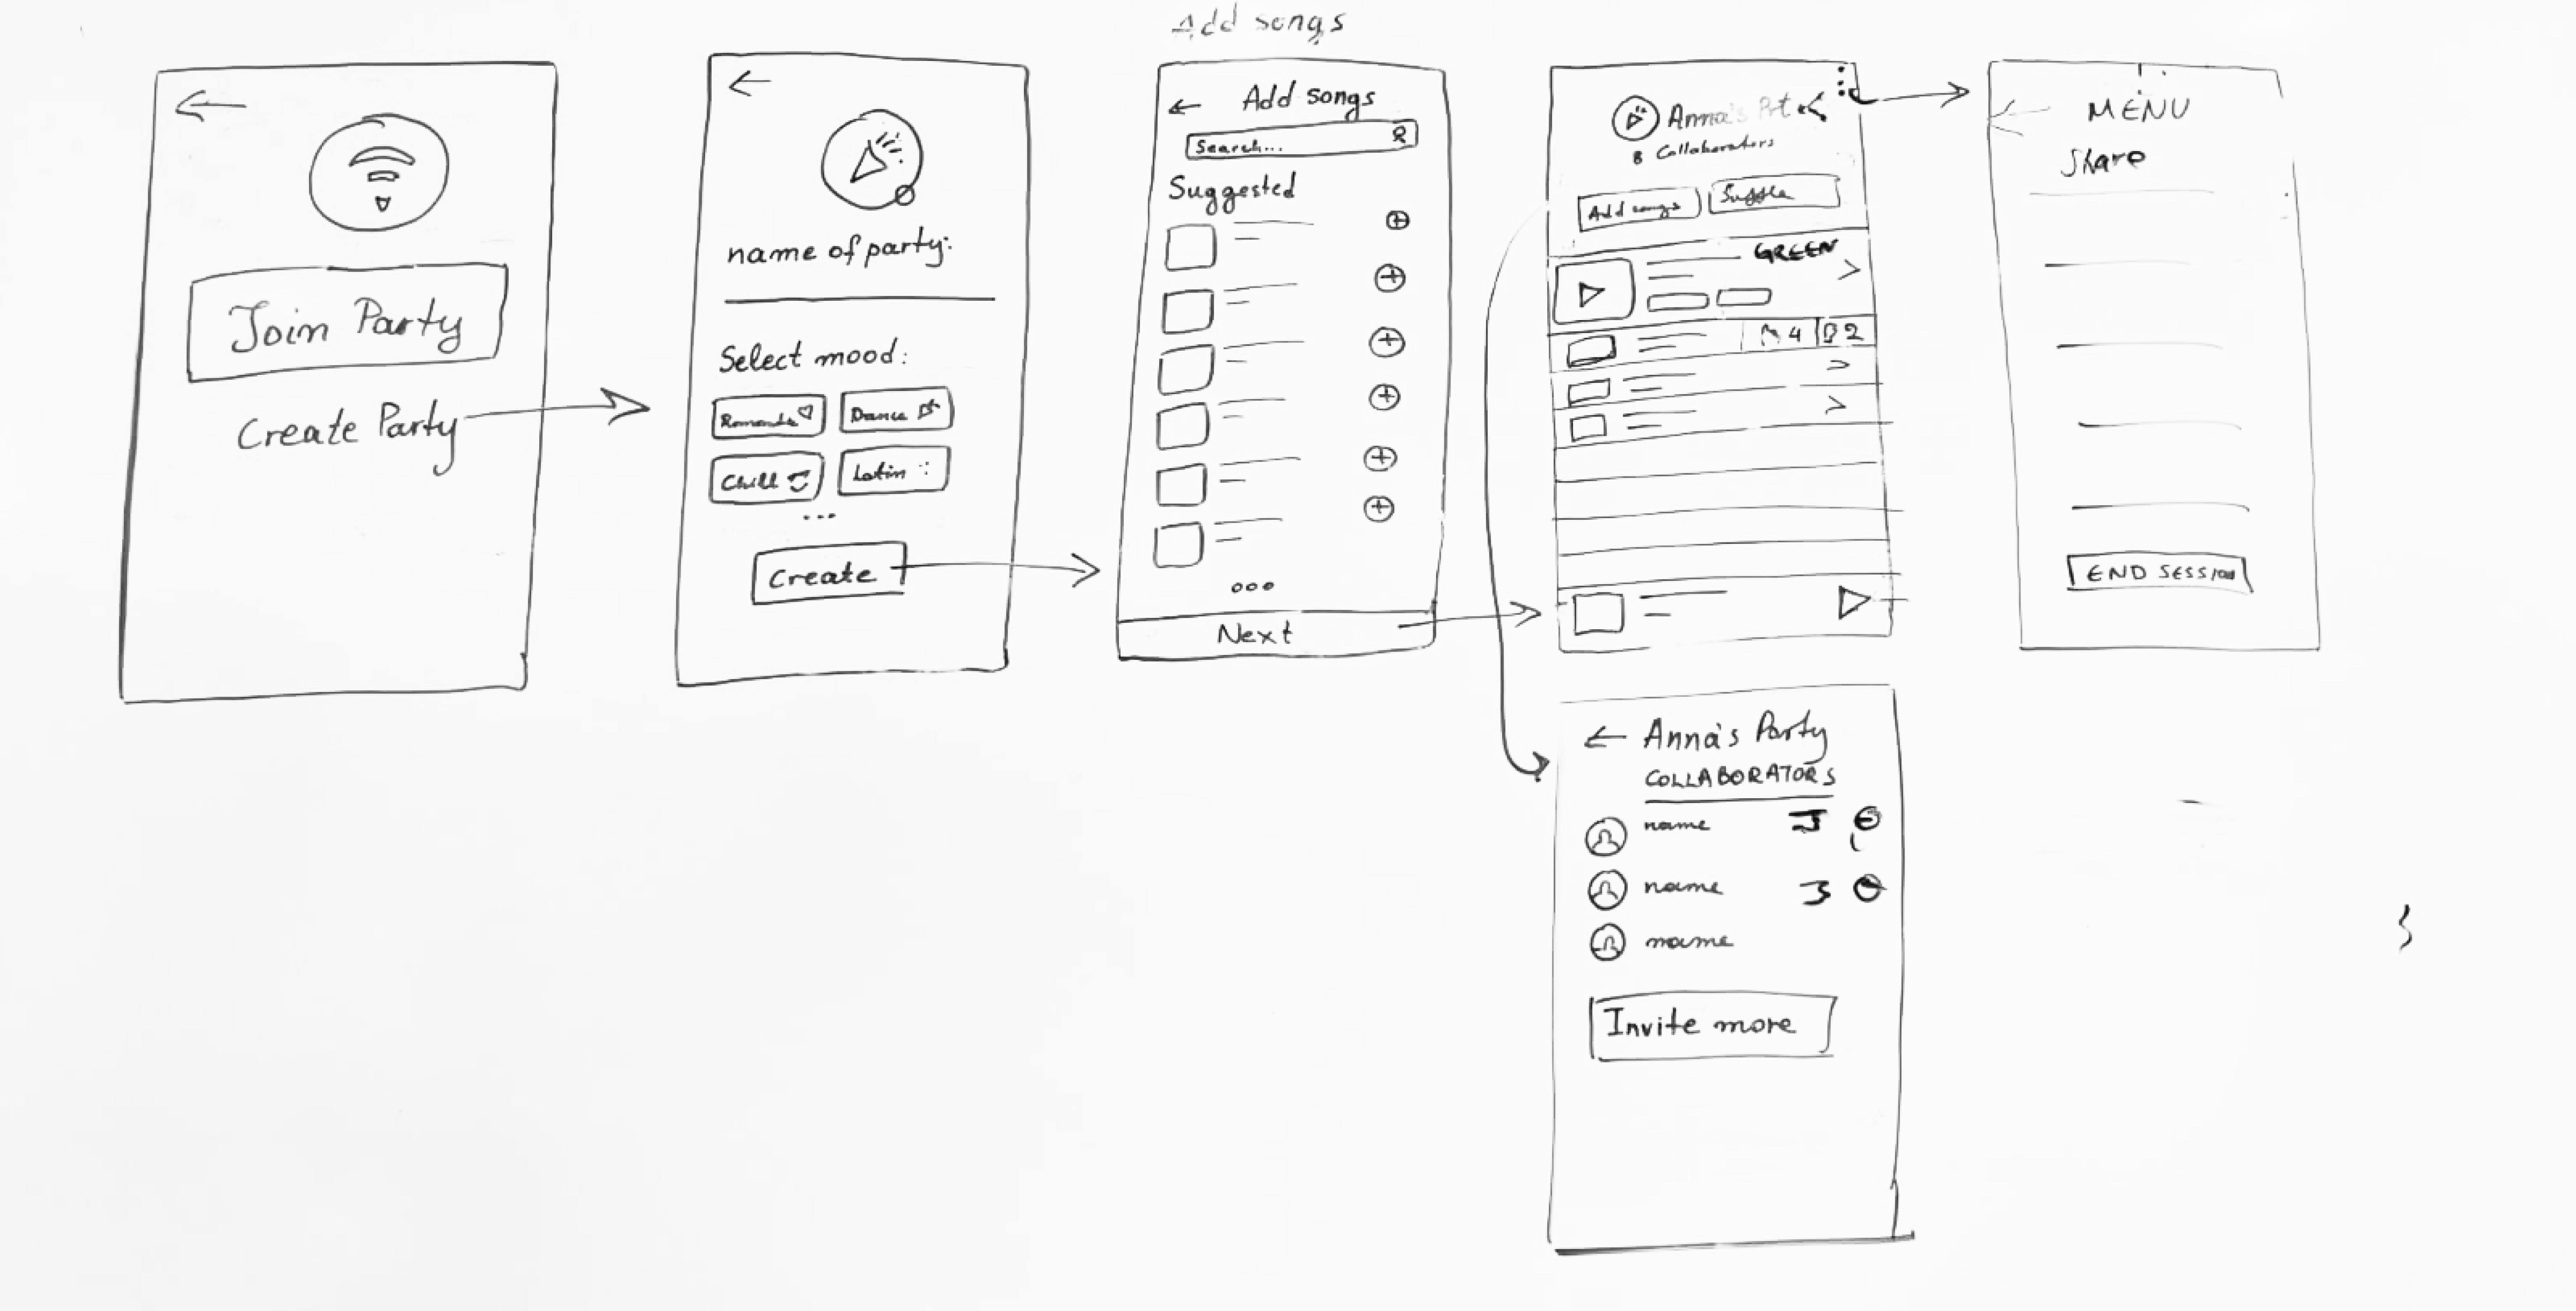 Add songs
Join Party
Create Party
name of party:
Select mood:
Dance
Chill
Latin
...
Create
Add songs
Search...
Suggested
ooo
Next
Anna's
8 Collaborators
Add songs
GREEN
4
2
MENU
Share
END SESSION
Anna's Party
COLLABORATORS
name
name
name
Invite more